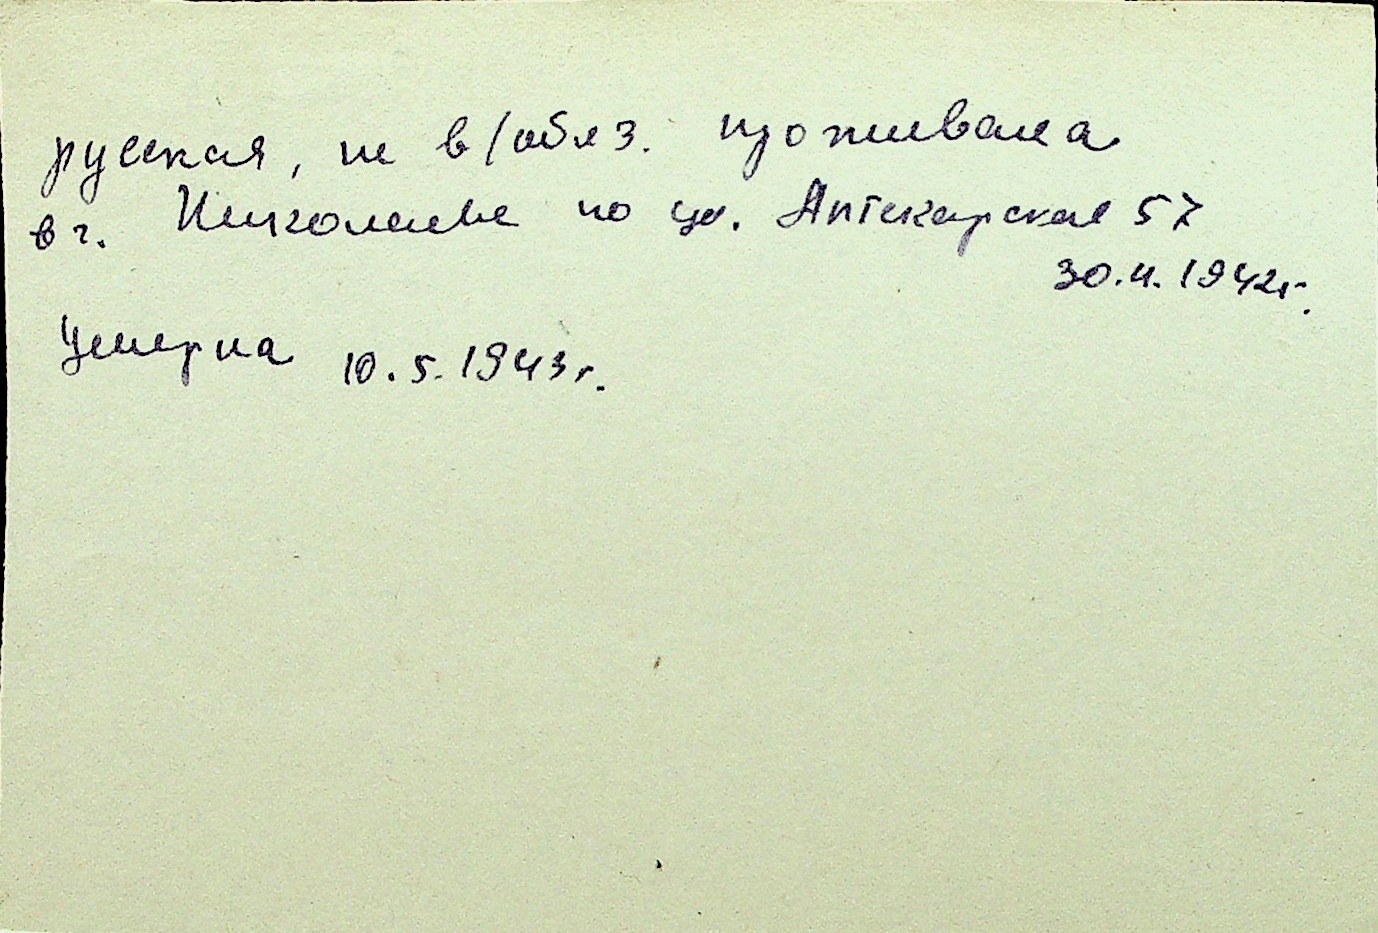 русская, не в/обяз. проживала
в г. Николаеве по ул. Аптекарская 57
30.4.1942г.
Умерла 10.5.1943г.